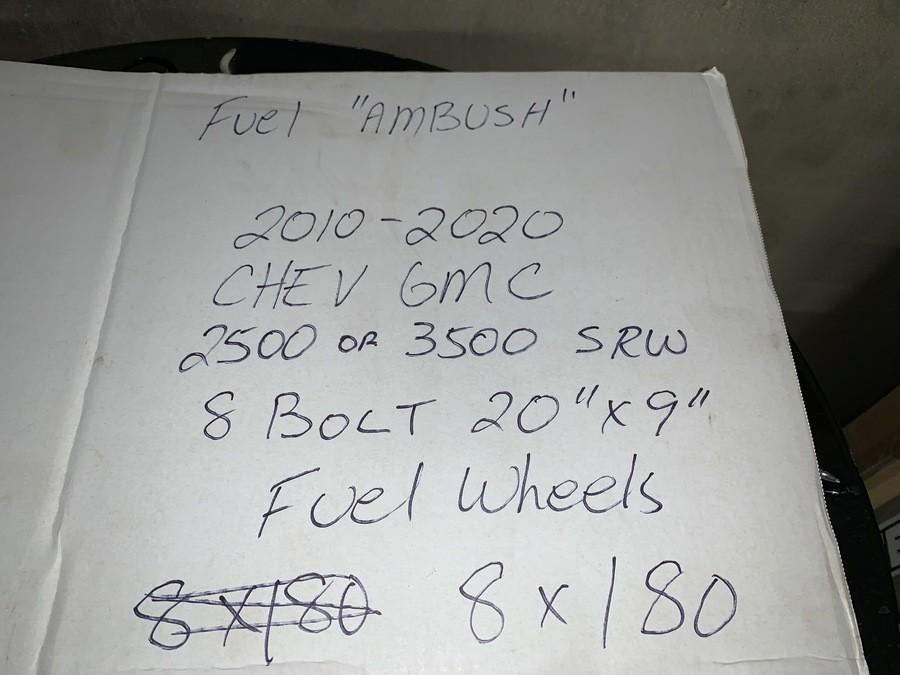 Fuel "AMBUSH"
2010-2020
CHEV GMC
2500 OR 3500 SRW
8 BOLT 20"x9"
Fuel Wheels
8x180 8x180